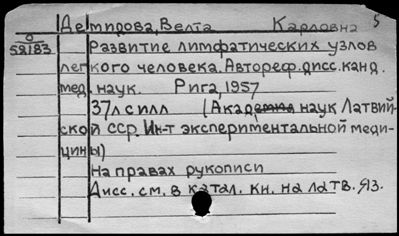 Демпирова, Велта Карловна 5
0
52183
Развитие лимфатических узлов
легкого человека. Автореф. дисс. канд.
мед. наук. Рига, 1957
37л с илл (Академия наук Латвий-
ской ССР. Ин-т экспериментальной меди-
цины)
На правах рукописи
Дисс. см. в катал. кн. на латв. яз.